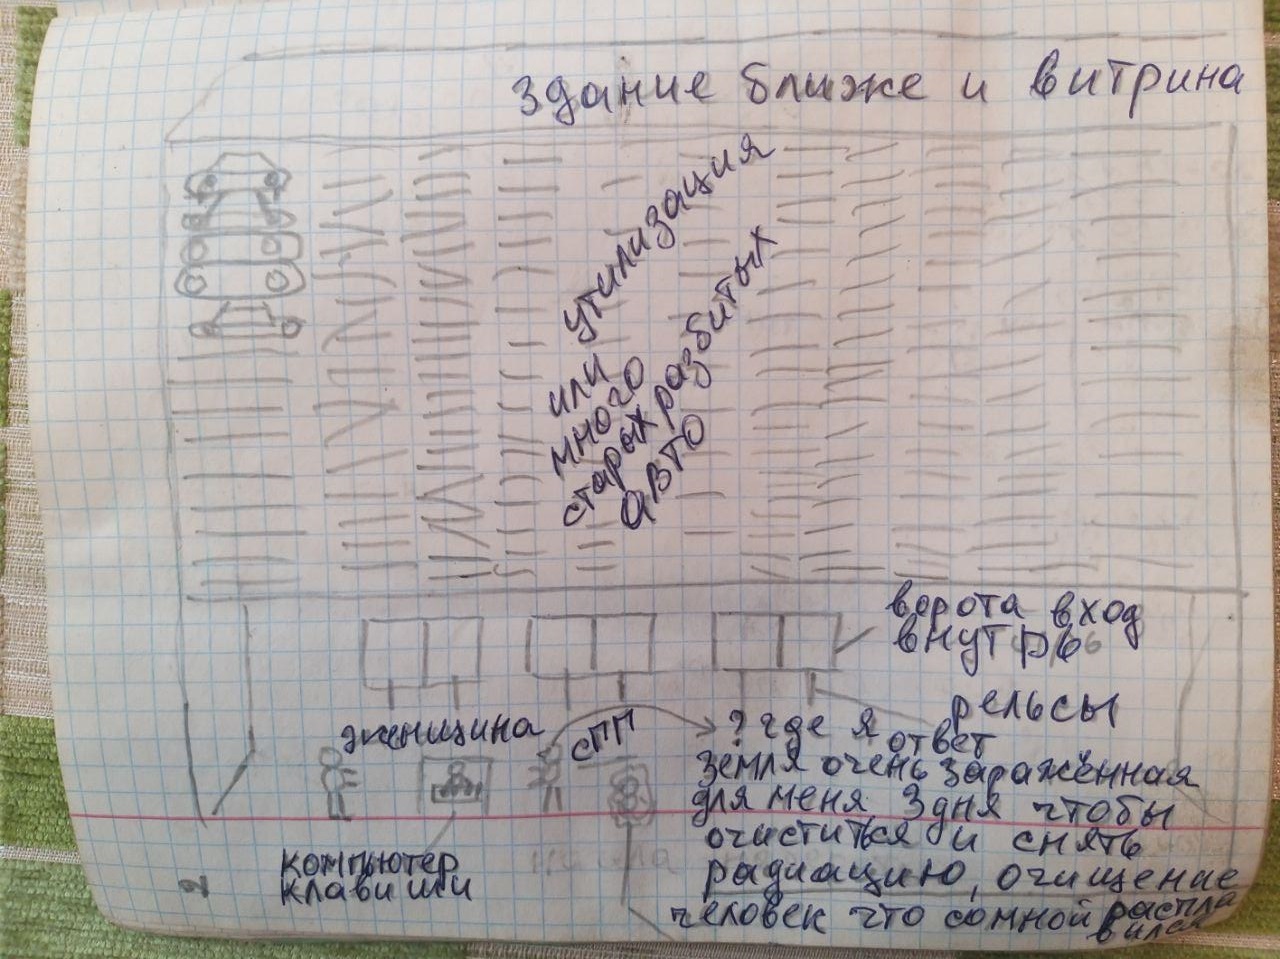 здание ближе и витрина
утилизация
или
много
старых разбитых
авто
ворота вход
внутрь
рельсы
женщина
спп
? где я
ответ
земля очень заражённая
для меня 3 дня чтобы
очиститься и снять
радиацию, очищение
человек что сомной распла
вился
компьютер
клавиши